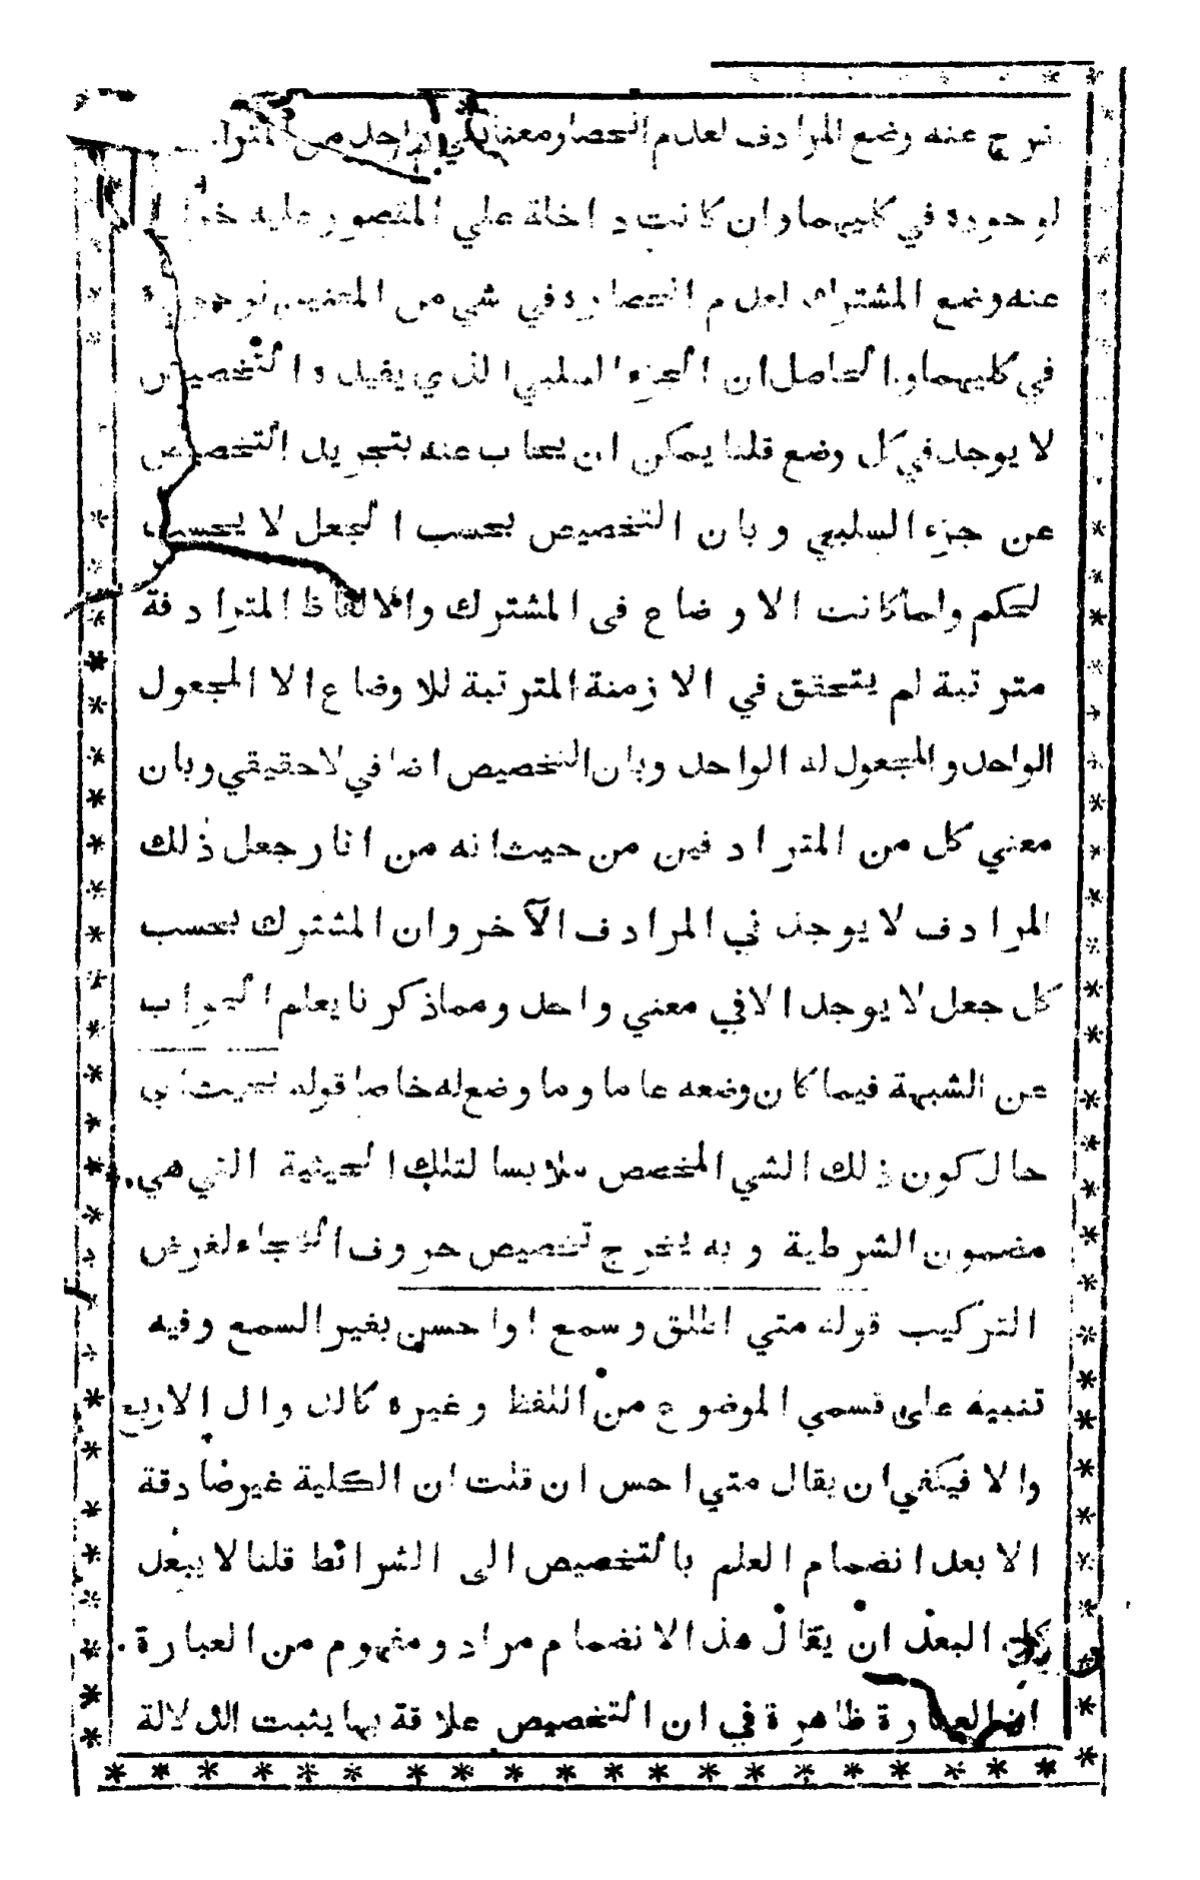 عنه وضع المرادف لعدم انحصار ومعنا
لوجوده في كليهما وان كانت داخلة علي المقصور عليه
عنه وضع المشترك لعدم انحصاره في شي من المعنيين لوجوده
في كليهما والحاصل ان الجزء السلبي الذي يفيده التخصيص
لا يوجد في كل وضع قلنا يمكن ان يجاب عنه بتجريد التخصيص
عن جزء السلبي وبان التخصيص بحسب الجعل لا بحسب
لحكم ولما كانت الاوضاع في المشترك والالفاظ المترادفة
مترتبة لم يتحقق في الازمنة المترتبة للاوضاع الا المجعول
الواحد والمجعول له الواحد وبان التخصيص اضافي لا حقيقي وبان
معني كل من المترادفين من حيث انه من اثار جعل ذلك
المرادف لا يوجد في المرادف الآخر وان المشترك بحسب
كل جعل لا يوجد الا في معني واحد ومما ذكرنا يعلم الجواب
عن الشبهة فيما كان وضعه عاما وما وضع له خاصا قوله بحيث اي
حال كون ذلك الشي المخصص ملابسا لتلك الحيثية التي هي
مضمون الشرطية وبه يخرج تخصيص حروف الهجاء لغرض
التركيب قوله متي اطلق وسمع او احسن بغير السمع وفيه
تنبيه علي قسمي الموضوع من اللفظ وغيره كالدوال الاربع
والا فيكفي ان يقال متي احس ان قلت ان الكلية غير صادقة
الا بعد انضمام العلم بالتخصيص الي الشرائط قلنا لا يبعد
كل البعد ان يقال هذا الانضمام مراد ومفهوم من العبارة
العبارة ظاهرة في ان التخصيص علاقة بها يثبت الدلالة